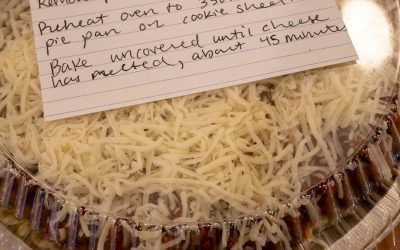 Preheat oven to 350
pie pan on cookie sheet
Bake uncovered until cheese
has melted, about 45 minutes